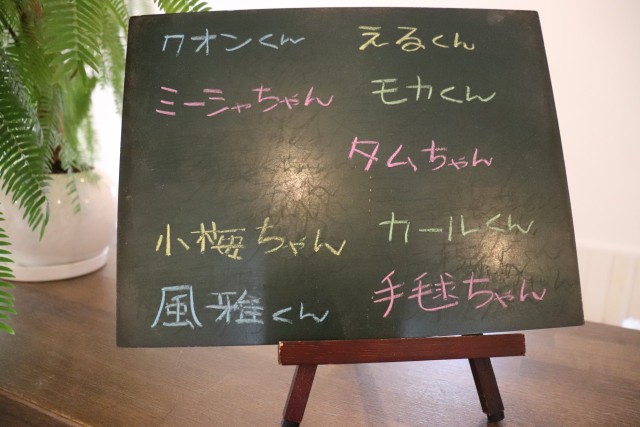 クオンくん
えるくん
ミーシャちゃん
モカくん
タムちゃん
小梅ちゃん
カールくん
風雅くん
手毬ちゃん